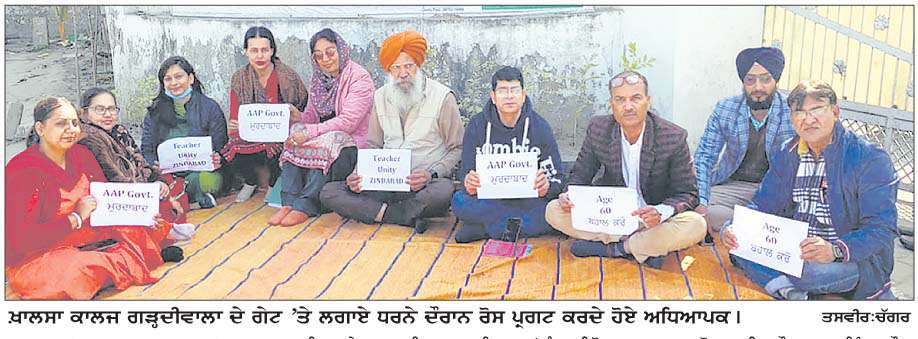 AAP Govt.
ਮੁਰਦਾਬਾਦ
Teacher
Unity
ZINDABAD
AAP Govt.
ਮੁਰਦਾਬਾਦ
Teacher
Unity
ZINDABAD
AAP Govt.
ਮੁਰਦਾਬਾਦ
Age
60
ਬਹਾਲ ਕਰੋ
Age
60
ਬਹਾਲ ਕਰੋ
ਖ਼ਾਲਸਾ ਕਾਲਜ ਗੜ੍ਹਦੀਵਾਲਾ ਦੇ ਗੇਟ 'ਤੇ ਲਗਾਏ ਧਰਨੇ ਦੌਰਾਨ ਰੋਸ ਪ੍ਰਗਟ ਕਰਦੇ ਹੋਏ ਅਧਿਆਪਕ। ਤਸਵੀਰ:ਚੱਗਰ